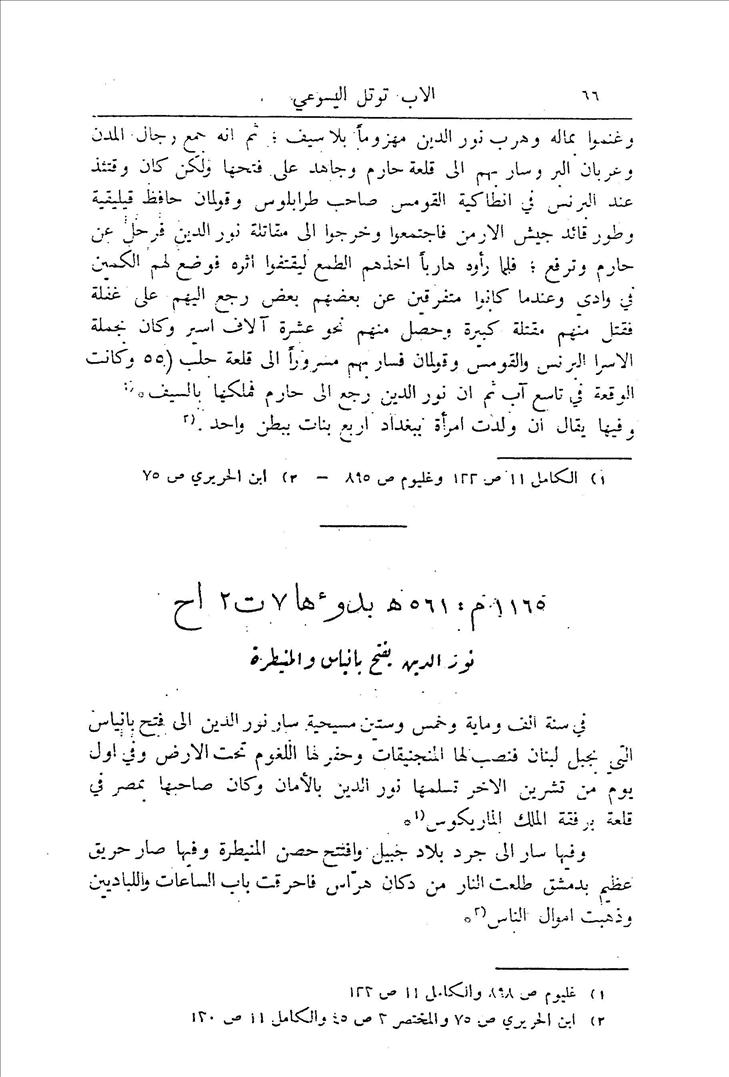 ٦٦ الاب توتل اليسوعي
وغنموا بماله وهرب نور الدين مهزوماً بلا سيف ؛ ثم انه جمع رجال المدن
وعربان البر وسار بهم الى قلعة حارم وجاهد على فتحها ولكن كان وقتئذ
عند البرنس في انطاكية القومس صاحب طرابلوس وقولمان حافظ قيليقية
وطور قائد جيش الارمن فاجتمعوا وخرجوا الى مقاتلة نور الدين فرحل عن
حارم وترفع ؛ فلما رأوه هارباً اخذهم الطمع ليقتفوا اثره فوضع لهم الكمين
في وادي وعندما كانوا متفرقين عن بعضهم بعض رجع اليهم على غفلة
فقتل منهم مقتلة كبيرة وحصل منهم نحو عشرة آلاف اسير وكان بجملة
الاسرا البرنس والقومس وقولمان فسار بهم مسروراً الى قلعة حلب (٥٥ وكانت
الوقعة في تاسع آب ثم ان نور الدين رجع الى حارم فملكها بالسيف
وفيها يقال ان ولدت امرأة ببغداد اربع بنات ببطن واحد .(٢
١) الكامل ١١ ص ١٢٢ وغليوم ص ٨٩٥ – ٢) ابن الحريري ص ٧٥
١١٦٥ م : ٥٦١ هـ بدوءها ٧ ت ٢ اح
نور الدين يفتح بانياس والمنيطرة
في سنة الف وماية وخمس وستين مسيحية سار نور الدين الى فتح بانياس
التي بجبل لبنان فنصب لها المنجنيقات وحفر لها اللغوم تحت الارض وفي اول
يوم من تشرين الاخر تسلمها نور الدين بالأمان وكان صاحبها بمصر في
قلعة برفقة الملك الماريكوس(١•
وفيها سار الى جرد بلاد جبيل وافتتح حصن المنيطرة وفيها صار حريق
عظيم بدمشق طلعت النار من دكان هرّاس فاحرقت باب الساعات واللباديين
وذهبت اموال الناس(٢•
١) غليوم ص ٨٩٨ والكامل ١١ ص ١٢٢
٢) ابن الحريري ص ٧٥ والمختصر ٢ ص ٤٥ والكامل ١١ ص ١٢٠